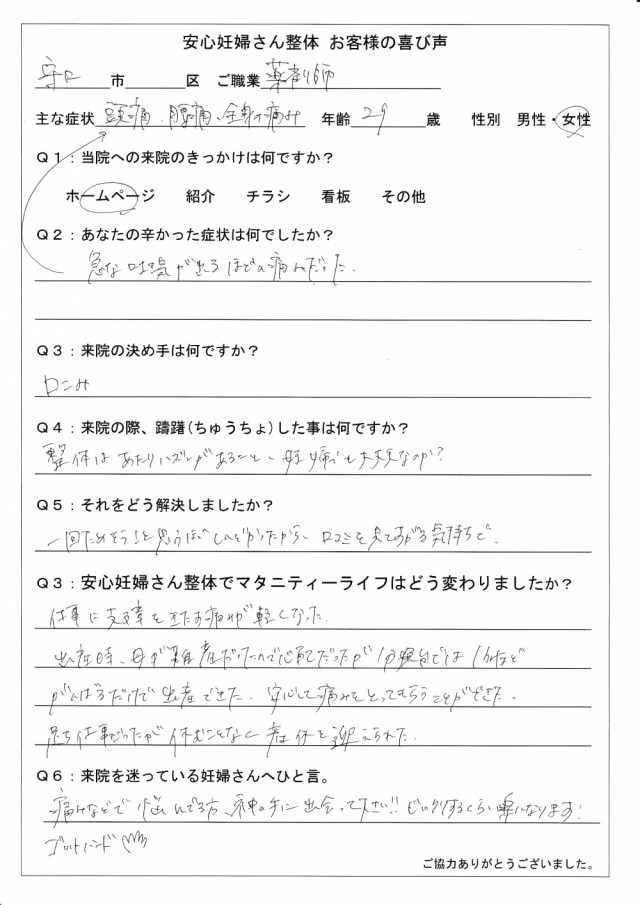 安心妊婦さん整体 お客様の喜び声
守口 市 区 ご職業 薬剤師
主な症状 頭痛、腰痛、全身の痛み 年齢 29 歳 性別 男性・女性
Q1:当院への来院のきっかけは何ですか?
ホームページ 紹介 チラシ 看板 その他
Q2:あなたの辛かった症状は何でしたか?
急な吐き気がでるほどの痛みだった.
Q3:来院の決め手は何ですか?
口こみ
Q4:来院の際、躊躇(ちゅうちょ)した事は何ですか?
整体はあたりハズレがあること、妊婦でも大丈夫なのか?
Q5:それをどう解決しましたか?
一回ためそう!と思うほどしんどかったから、口コミを見てすがる気持ちで.
Q3:安心妊婦さん整体でマタニティーライフはどう変わりましたか?
仕事に支障をきたす痛みが軽くなった.
出産時、母が難産だったので心配だったが分娩台では1hほど
がんばるだけで出産できた.安心して痛みをとってもらうことができた.
立ち仕事だったが休むことなく産休を迎えられた.
Q6:来院を迷っている妊婦さんへひと言。
痛みなどで悩んでる方、神の手に出会って下さい!!ビックリするくらい楽になります!
ゴッドハンド
ご協力ありがとうございました。